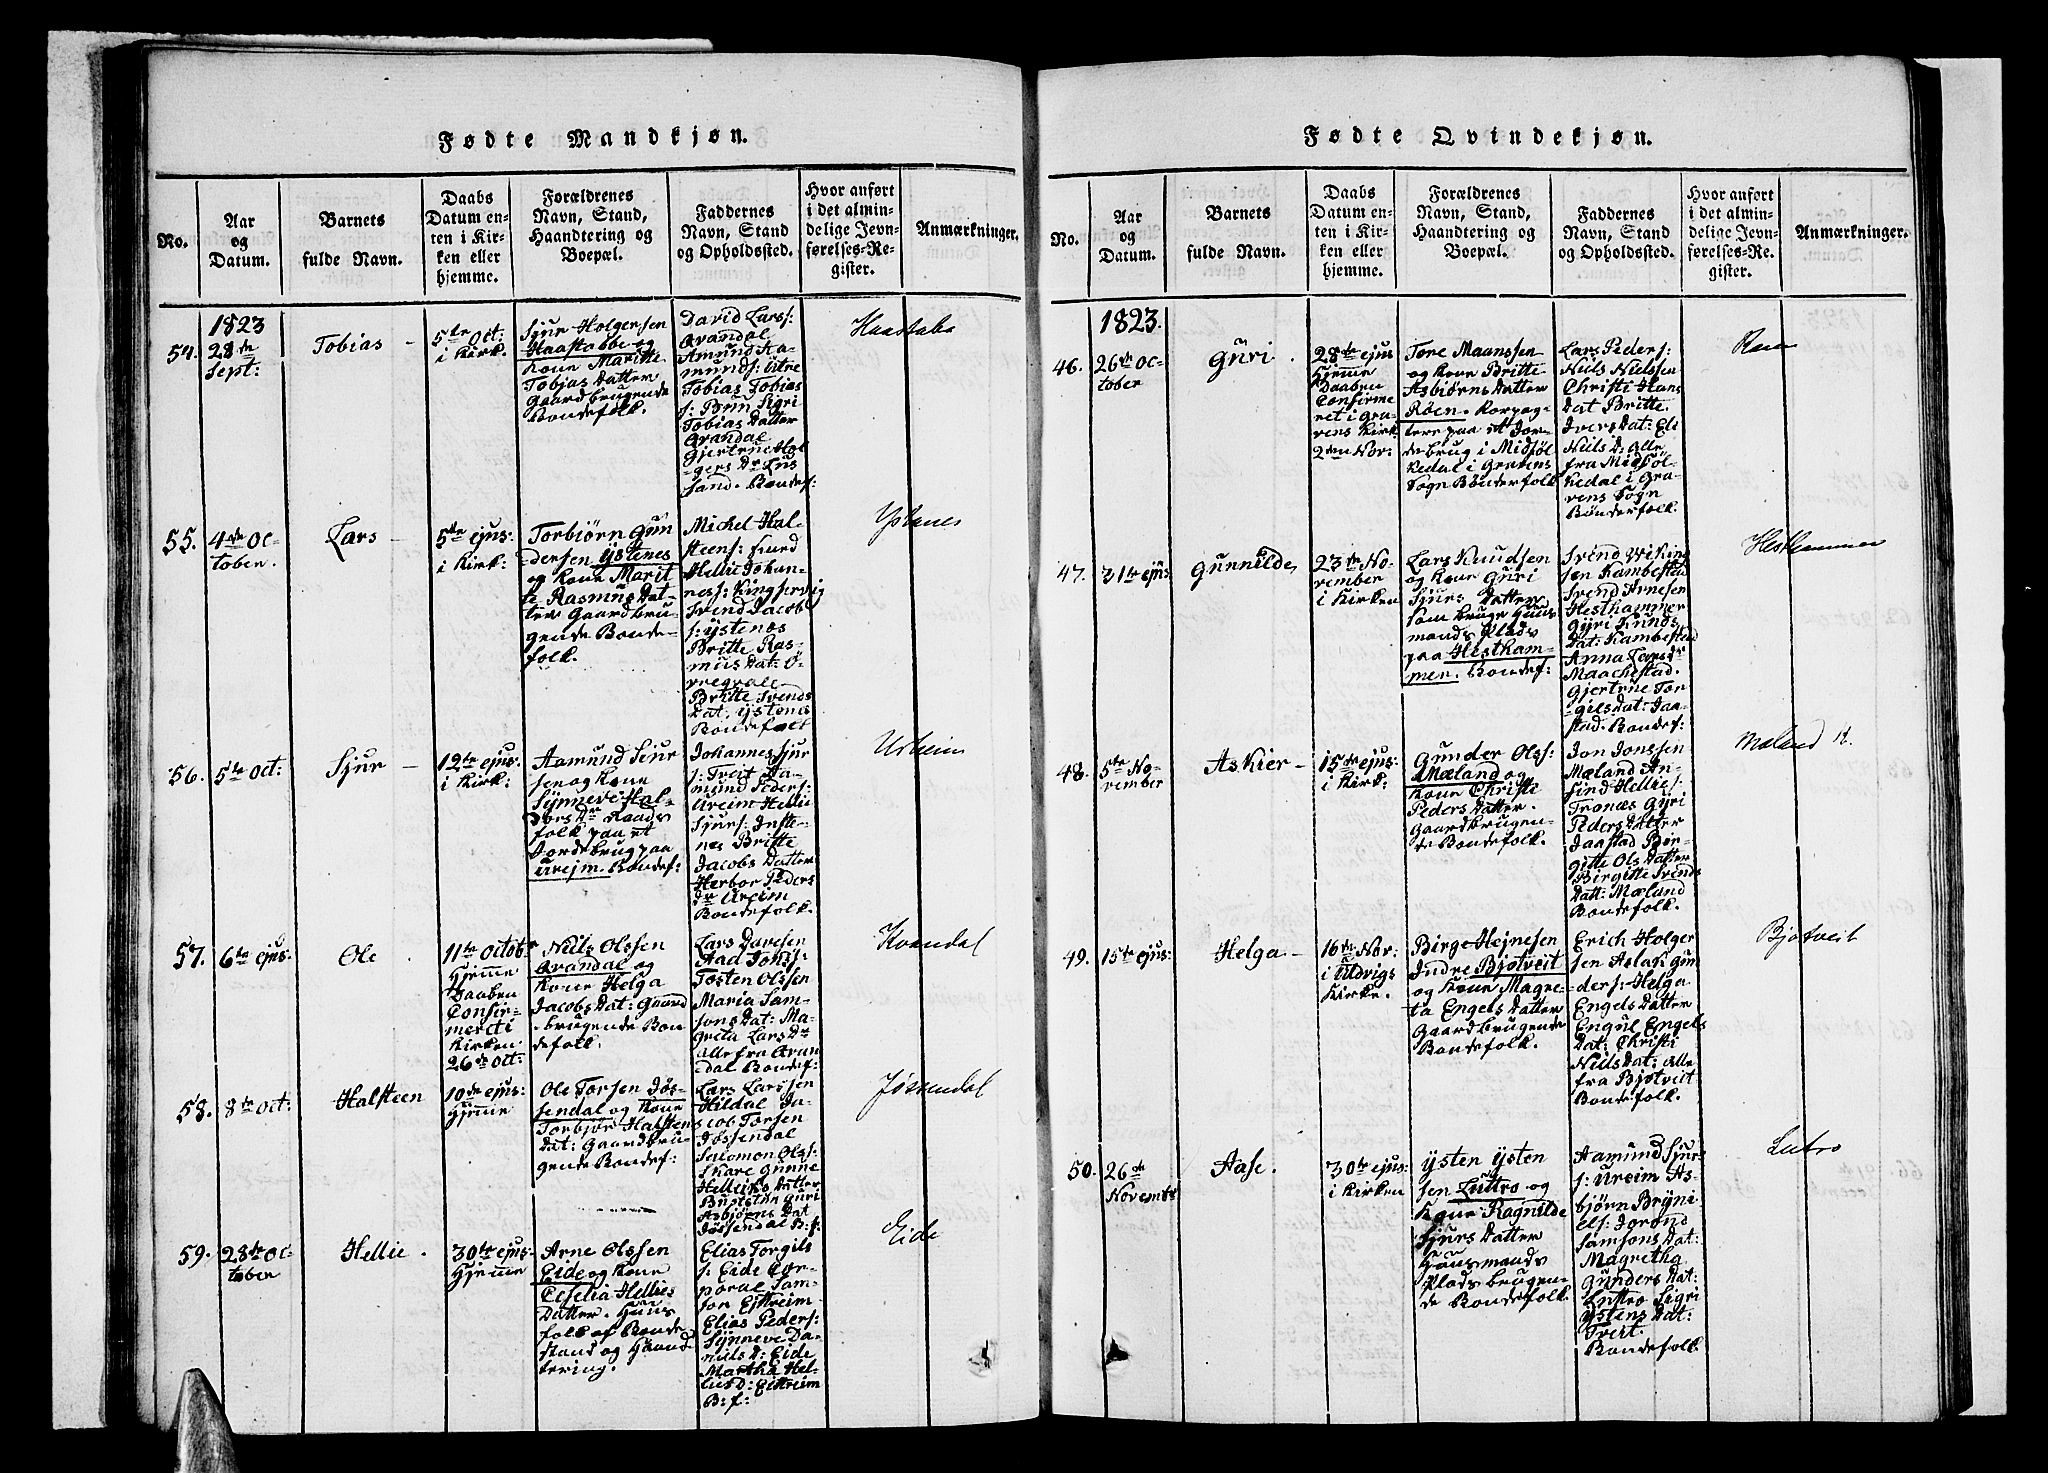 Fødte Mandkjøn.
No.
Aar
og
Datum.
Barnets
fulde Navn.
Daabs
Datum en-
ten i Kir-
ken eller
hjemme.
Forældrenes
Navn, Stand,
Haandtering og
Boepæl.
Faddernes
Navn, Stand
og Opholdssted.
Hvor anført
i det almin-
delige Jevn-
førelses-Re-
gister.
Anmærkninger.
1823
54.
28de
Sept:
Tobias
5te Oct:
i Kirk:
Sjur Holgersen
Haastabbe og
Kone Maritte
Tobias Datter
Gaardbrugende
Bondefolk.
David Lars:
Qvandal
Amund Aa-
munds: Utre
Tobias Tobias
s: Brun Sigri
Tobias Datter
Qvandal
Gjertene Hol
gers Dr Lus
sand. Bondef:
Haastabe
55.
4de Oc-
tober.
Lars
5te ejus:
i Kirk:
Torbiørn Gun
dersen Ystenes
og Kone Marit
te Rasmus Dat-
ter Gaardbru-
gende Bonde-
folk.
Michel Hal-
steens: smed
Hellie Johan-
nes: Kingservig
Svend Jacob
s: Ystenæs
Britte Ras-
mus Dat: Ø-
vregvale
Britte Svends
Dat, Ystenes
Bondefolk
Ystenes
56.
5te Oct:
Sjur
12te ejus:
i Kirk:
Aamund Siur
sen og Kone
Synneve Hal-
dors Dr Raads
folk paa et
Jordebrug paa
Ureim. Bondef:
Johannes Sjur
s: Treit Aa-
mund Peders:
Ureim Hellie
Sjurs: Inste-
nes Britte
Jacobs Datter
Herbor Peders
dr Ureim
Bondefolk.
Urheim
57.
6te ejus:
Ole
11te Octobr
Hjemme
Daaben
Confir-
meret i
Kirken
26de Oct:
Niels Olssen
Qvandal og
Kone Helga
Jacobs Dat: Gaard
brugende Bon
defolk.
Lars Davesen
Aad Jons:
Tosten Olssen
Maria Sam-
sons Dat: Ma-
greta Lars Dr
alle fra Qvan
dal Bondef:
Kvandal
58.
8te Oct:
Halsteen
10de ejus:
Hjemme
Ole Torsen Jøs-
sendal og Kone
Torbjør Halstens
Dat: Gaardbru-
gende Bondef:
Lars Larssen
Hildal Ja-
cob Torsen
Jøssendal
Salomon Ols:
Skare Gunne
Helliks Datter
Bustetøn Guri
Asbjørns Dat
Jøssendal B: f:
Jøssendal
59.
28de Oc-
tober
Hellie.
30te ejus:
Hjemme
Arne Olssen
Eide og Kone
Cecelia Hellies
Datter. Huus
folk af Bonde
stand og Haand
tering.
Elias Torgils
s: Eide Cor-
poral Sam-
son Eittreim
Elias Peders:
Synneve Da-
niels D: Eide
Martha Hel-
lies D: Eittreim
B: f:
Eide
Fødte Qvindekjøn.
No.
Aar
og
Datum.
Barnets
fulde Navn.
Daabs
Datum en-
ten i Kir-
ken eller
hjemme.
Forældrenes
Navn, Stand,
Haandtering og
Boepæl.
Faddernes
Navn, Stand
og Opholdssted.
Hvor anført
i det almin-
delige Jevn-
førelses-Re-
gister.
Anmærkninger.
1823.
46.
26de Oc-
tober
Guri
28de ejus
Hjemme
Daaben
Confirme
ret i Gra-
vens Kirk
2den Nov:
Tore Maanssen
og Kone Britte
Asbiørns Datter
Røen.
tere paa et Jor-
debrug i Midsøl
kedal i Gravens
Sogn Bønderfolk
Lars Peders:
Niels Nielsen
Christi Hans
Dat Britte
Ivers Dat: Eli
Niels D: Alle
fra Midsøl-
kedal i Gra-
vens Sogn
Bønderfolk.
Røen
47.
31te ejus
Gunnilde
23de No-
vember
i Kirken
Lars Knudsen
og Kone Guri
Sjurs Datter
som bruge Huus
mands Plads
paa Hestham-
mer. Bondef:
Svend Viking
sen Kambestad
Svend Arnesen
Hesthammer
Gyri Knuds
Dat: Kambestad
Anna Lars dr
Maachestad.
Gjertrue Tor
gils dat: Jaa-
stad. Bondef:
Hesthammer
48.
5te No-
vember
Askier
15de ejus:
i Kirk:
Gunder Ols:
Mæland og
Kone Christi
Peders Datter.
Gaardbrugen-
de Bondefolk.
Jon Jonssen
Mæland An-
find Hellies:
Tronæs Gyri
Peders Datter
Jaastad Bir-
gitte Ols Datter
Birgitte Svends
Datt: Mæland
Bondefolk.
Mæland K.
49.
15de ejus:
Helga
16de Nov-
i Uldvigs
Kirke.
Birge Hejnesen
Indre Bjotveit
og Kone Magre-
ta Engels Datter
Gaardbrugende
Bondefolk.
Erich Holger
sen Aslak Gun
ders: Helga
Engels Datter
Engul Engels
Dat: Christi
Niels Dat: alle
fra Bjotveit
Bondefolk.
Bjotveit
50.
26de
Novembr
Aase.
30te ejus:
i Kirken
Ysten Ysten
sen Luttro og
Kone Ragnilde
Sjurs Datter
Huusmands
Plads brugen-
de Bondefolk.
Aamund Sjur
s: Ureim As-
bjørn Bryni
els: Igrond
Samsons Dat:
Magretha
Gunders Dat:
Luttro Sigri
Ystens Dat:
Treit.
Bondefolk
Lutro